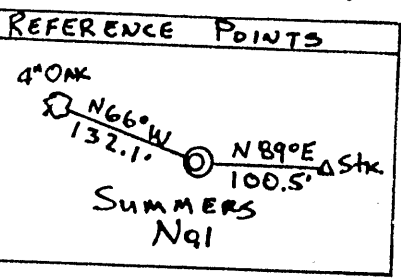 REFERENCE POINTS
4" OAK
N66°W
132.1'
N89°E
100.5'
Stk
SUMMERS
No1